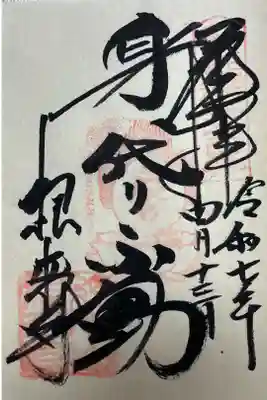 奉拝
令和七年
四月十三日
身代り不動
根来寺